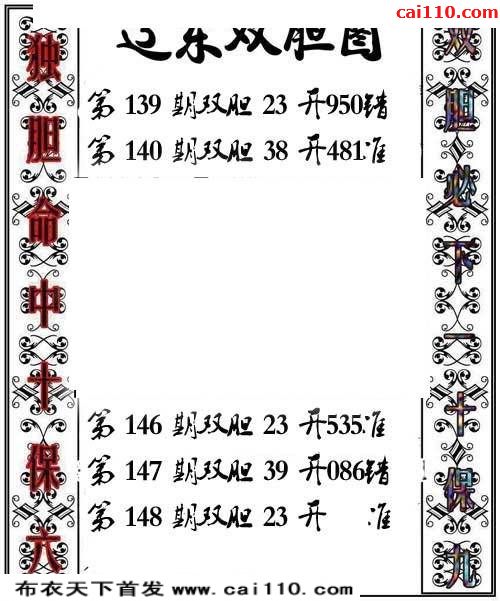 cai110.com
辽东双胆图
独胆命中十保六
第 139 期双胆 23 开950错
第 140 期双胆 38 开481准
第 146 期双胆 23 开535准
第 147 期双胆 39 开086错
第 148 期双胆 23 开 准
双胆必下一十保九
布衣天下首发 www.cai110.com